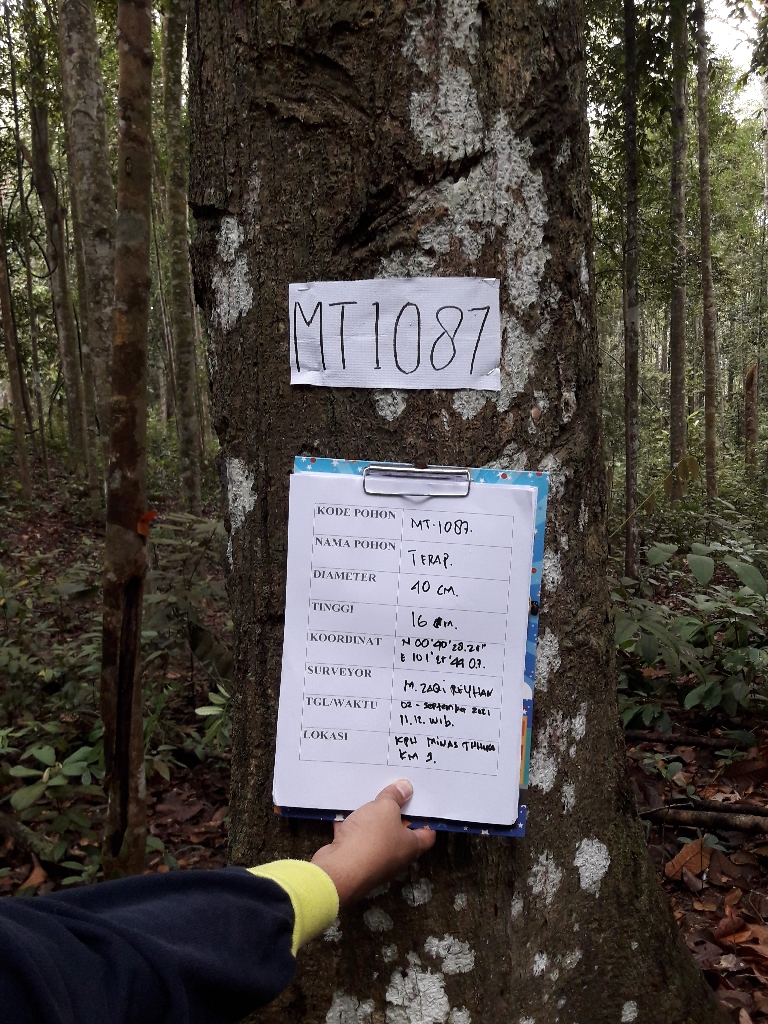 MT1087
KODE POHON MT-1087.
NAMA POHON TERAP.
DIAMETER 40 CM.
TINGGI 16 m.
KOORDINAT N 00°40'28.28"
E 101°28'44 07.
SURVEYOR M. ZAQI REYHAN
TGL/WAKTU 02 - September 2021
11.12. wib.
LOKASI KPH MINAS TAHURA
KM 2.